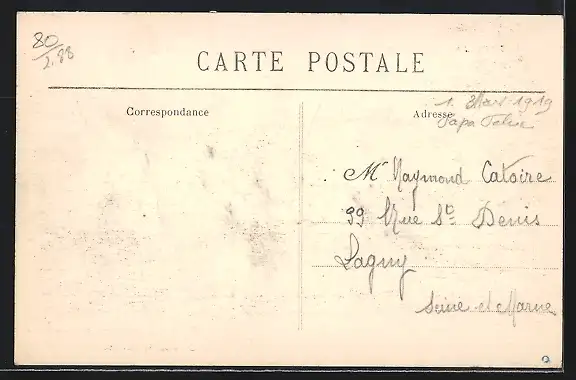 80
2.88
CARTE POSTALE
Correspondance
Adresse
1. Mars 1919
Papa
Mr Raymond Catoire
99 Rue St Denis
Lagny
Seine et Marne